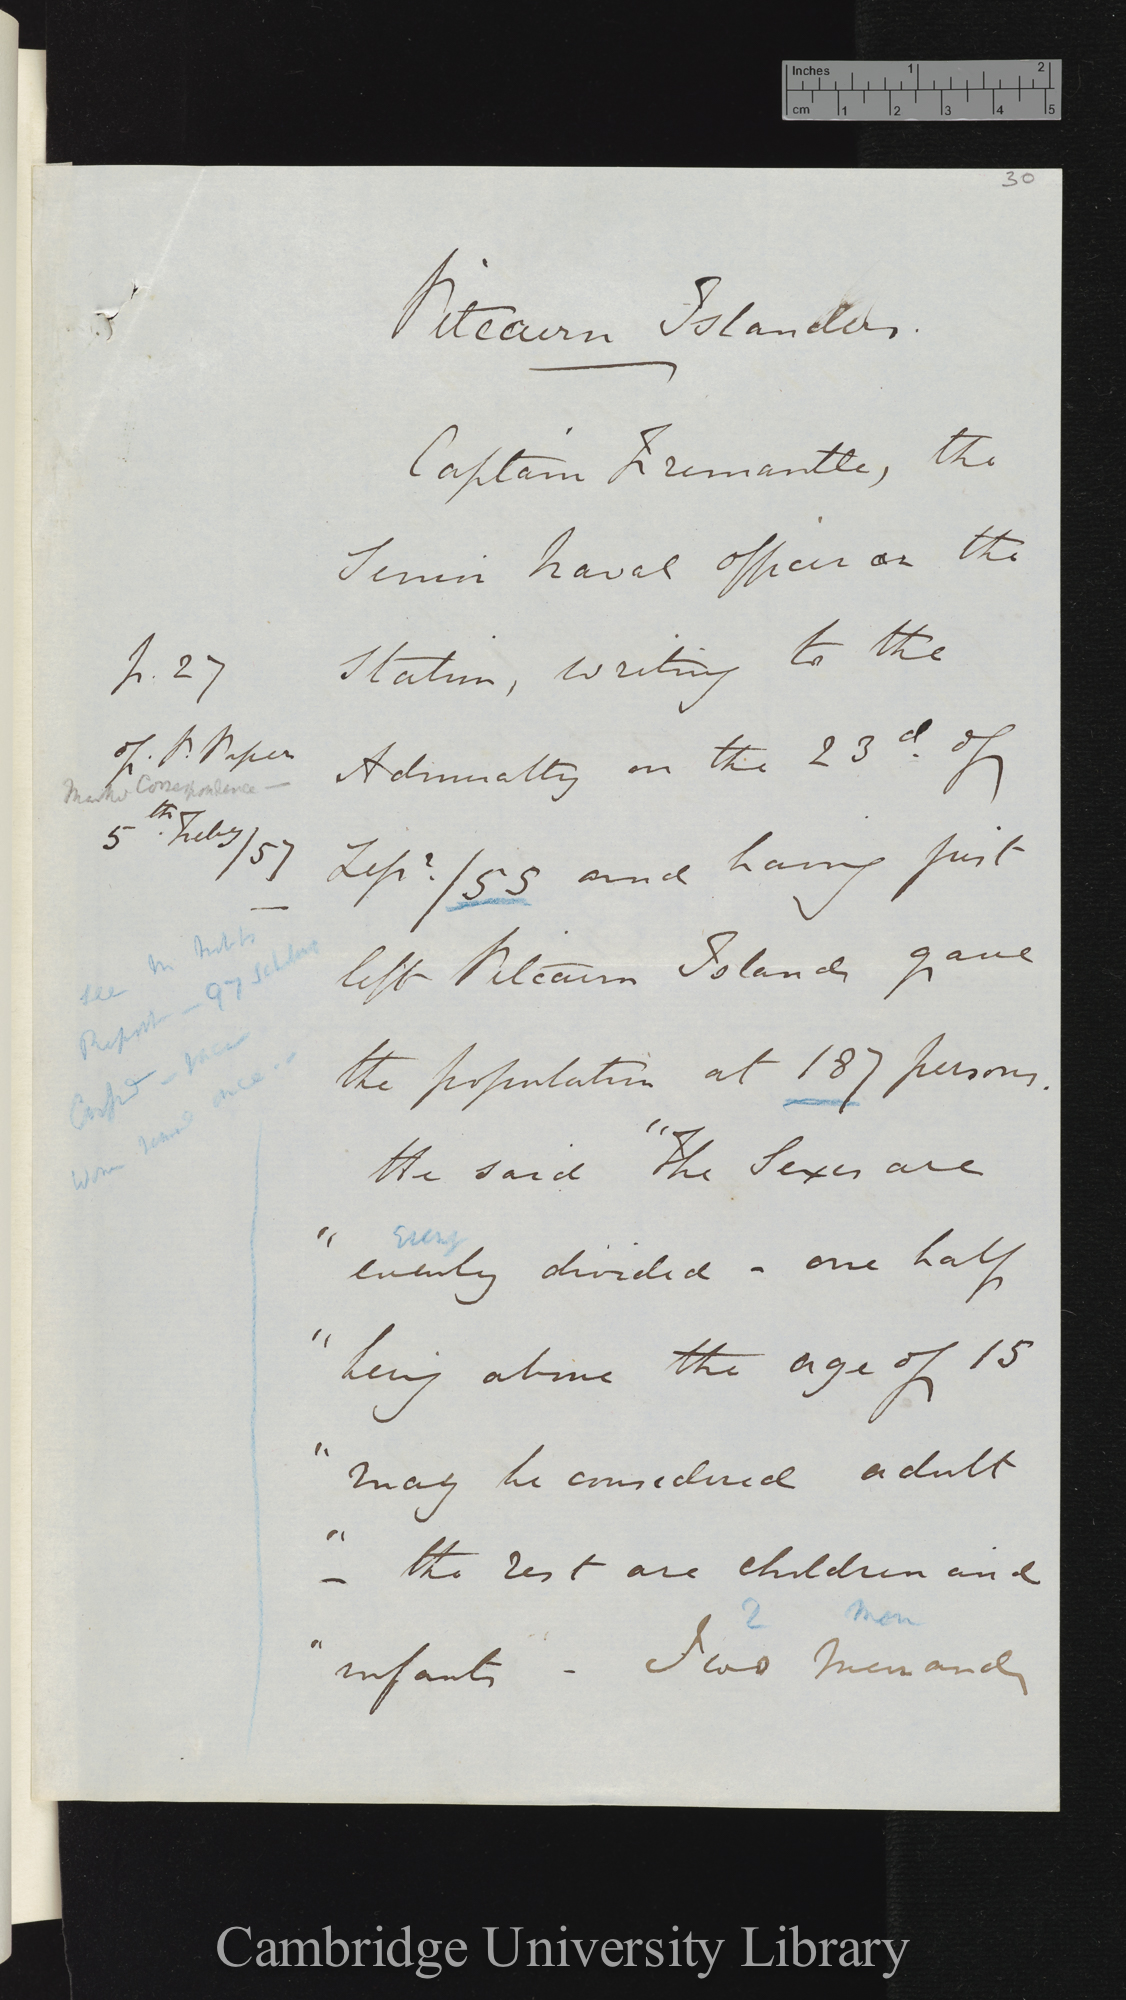 30
Pitcairn Islanders.
Captain Fremantle, the
Senior Naval officer on the
Station, writing to the
Admiralty on the 23d. of
Sepr. /55 and having just
left Pitcairn Island, gave
the population at 187 persons.
He said "The Sexes are
evenly
" evenly divided - one half
" being above the age of 15
" may be considered adult
" - the rest are children and
2 men
" infants - Two men and
p. 27
of P. Paper
Correspondence -
5th. Feby/57
see Mr Nobbs
Report - 97
Inches 1 2
cm 1 2 3 4 5
Cambridge University Library